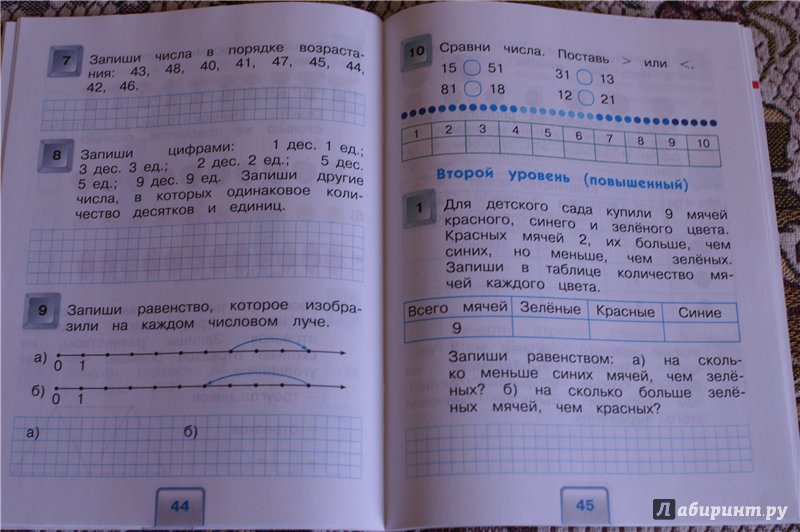 7
Запиши числа в порядке возраста-
ния: 43, 48, 40, 41, 47, 45, 44,
42, 46.
8
Запиши цифрами: 1 дес. 1 ед.;
3 дес. 3 ед.; 2 дес. 2 ед.; 5 дес.
5 ед.; 9 дес. 9 ед. Запиши другие
числа, в которых одинаковое коли-
чество десятков и единиц.
9
Запиши равенство, которое изобра-
зили на каждом числовом луче.
а)
0 1
б)
0 1
а) б)
44
10
Сравни числа. Поставь > или <.
15 51 31 13
81 18 12 21
1 2 3 4 5 6 7 8 9 10
Второй уровень (повышенный)
1
Для детского сада купили 9 мячей
красного, синего и зелёного цвета.
Красных мячей 2, их больше, чем
синих, но меньше, чем зелёных.
Запиши в таблице количество мя-
чей каждого цвета.
Всего мячей Зелёные Красные Синие
9
Запиши равенством: а) на сколь-
ко меньше синих мячей, чем зелё-
ных? б) на сколько больше зелё-
ных мячей, чем красных?
45
Лабиринт.ру